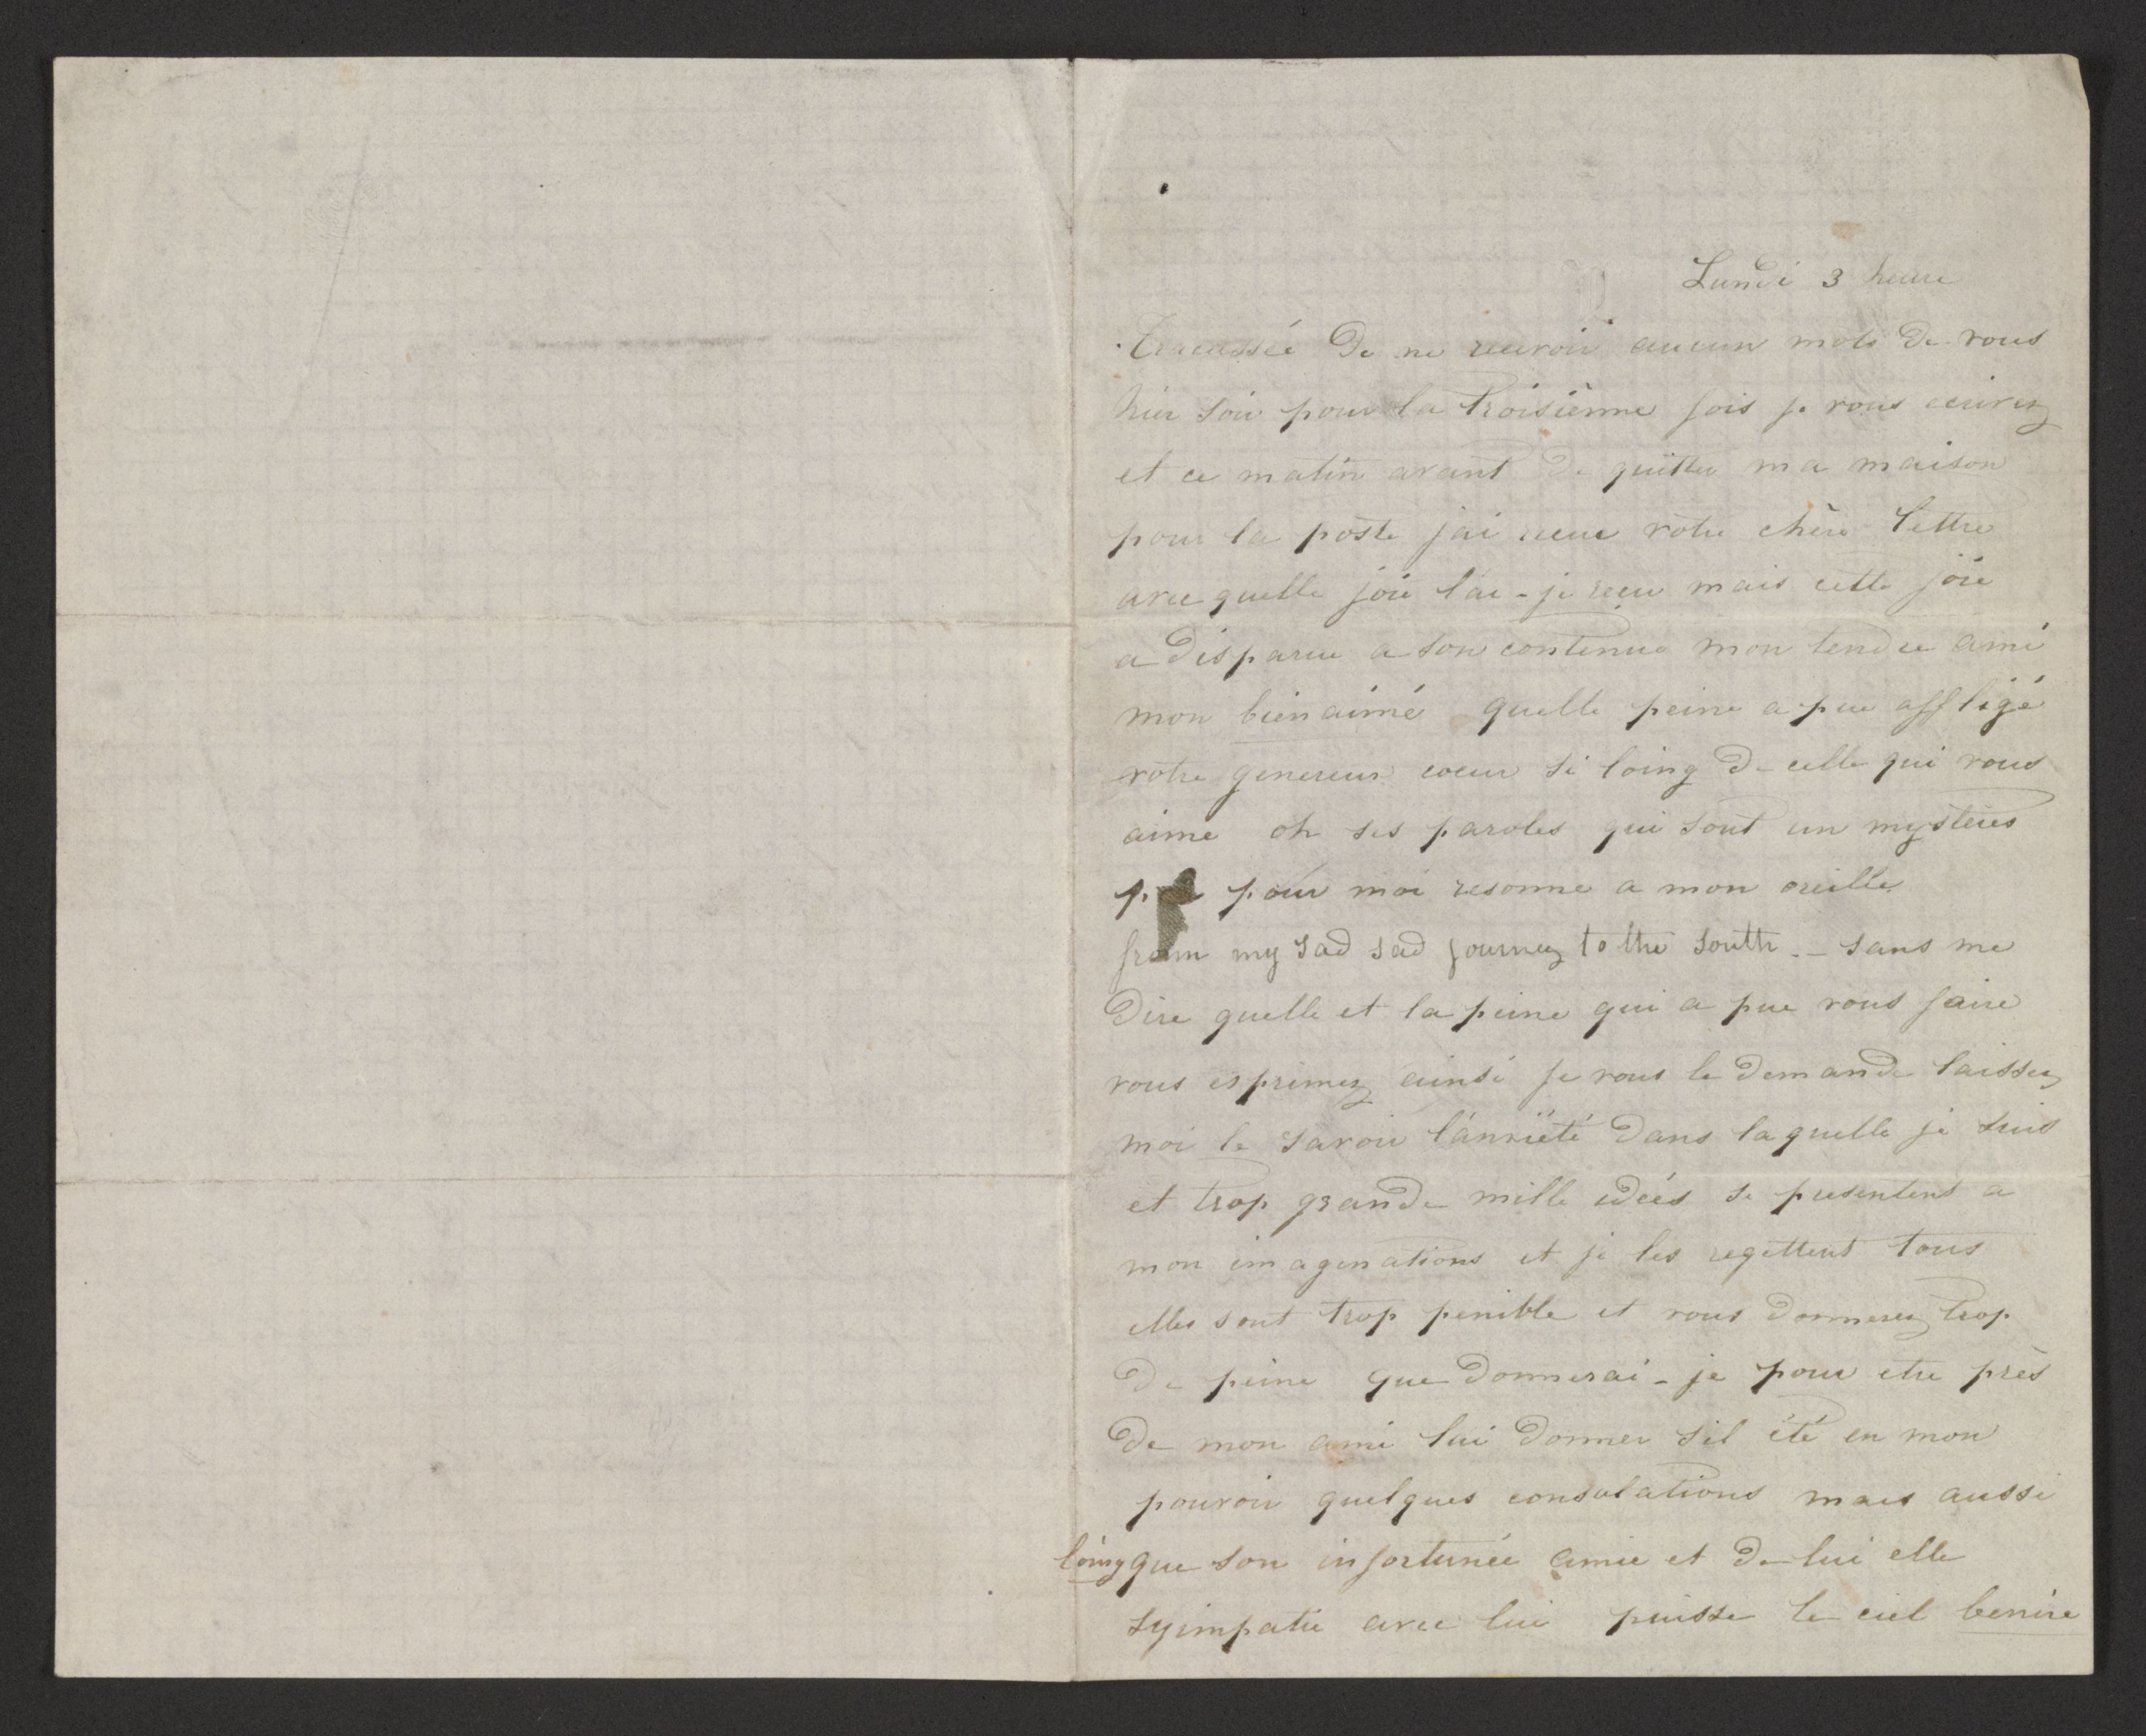 Lundi 3 heure
Tracassée De ne recevoir aucun mots De vous
hier soir pour la troisième fois je vous ecrivez
et ce matin avant De quitter ma maison
pour la poste jai recue votre chère lettre
avec quelle joie lai-je recu mais cette joie
a Disparue a son contenue mon tendre ami
mon bien aimé quelle peine a pue affligé
votre genereux coeur si loing De celle qui vous
aime oh ses paroles qui sont un mystères
pour moi resonne a mon oreille
from my sad sad journey to the south.- sans me
Dire quelle et la peine qui a pue vous faire
vous exprimez ainsi je vous le Demande laissez
moi le savoir l'anxiété Dans laquelle je suis
et trop grande mille idées se presentent a
mon imaginations et je les regettent tous
elles sont trop penible et vous Donnerez trop
De peine que Donnerai-je pour etre près
De mon ami lui Donner sil été en mon
pouvoir quelques consolations mais aussi
loing que son infortunée amie et De lui elle
syimpatie avec lui puisse le ciel benire